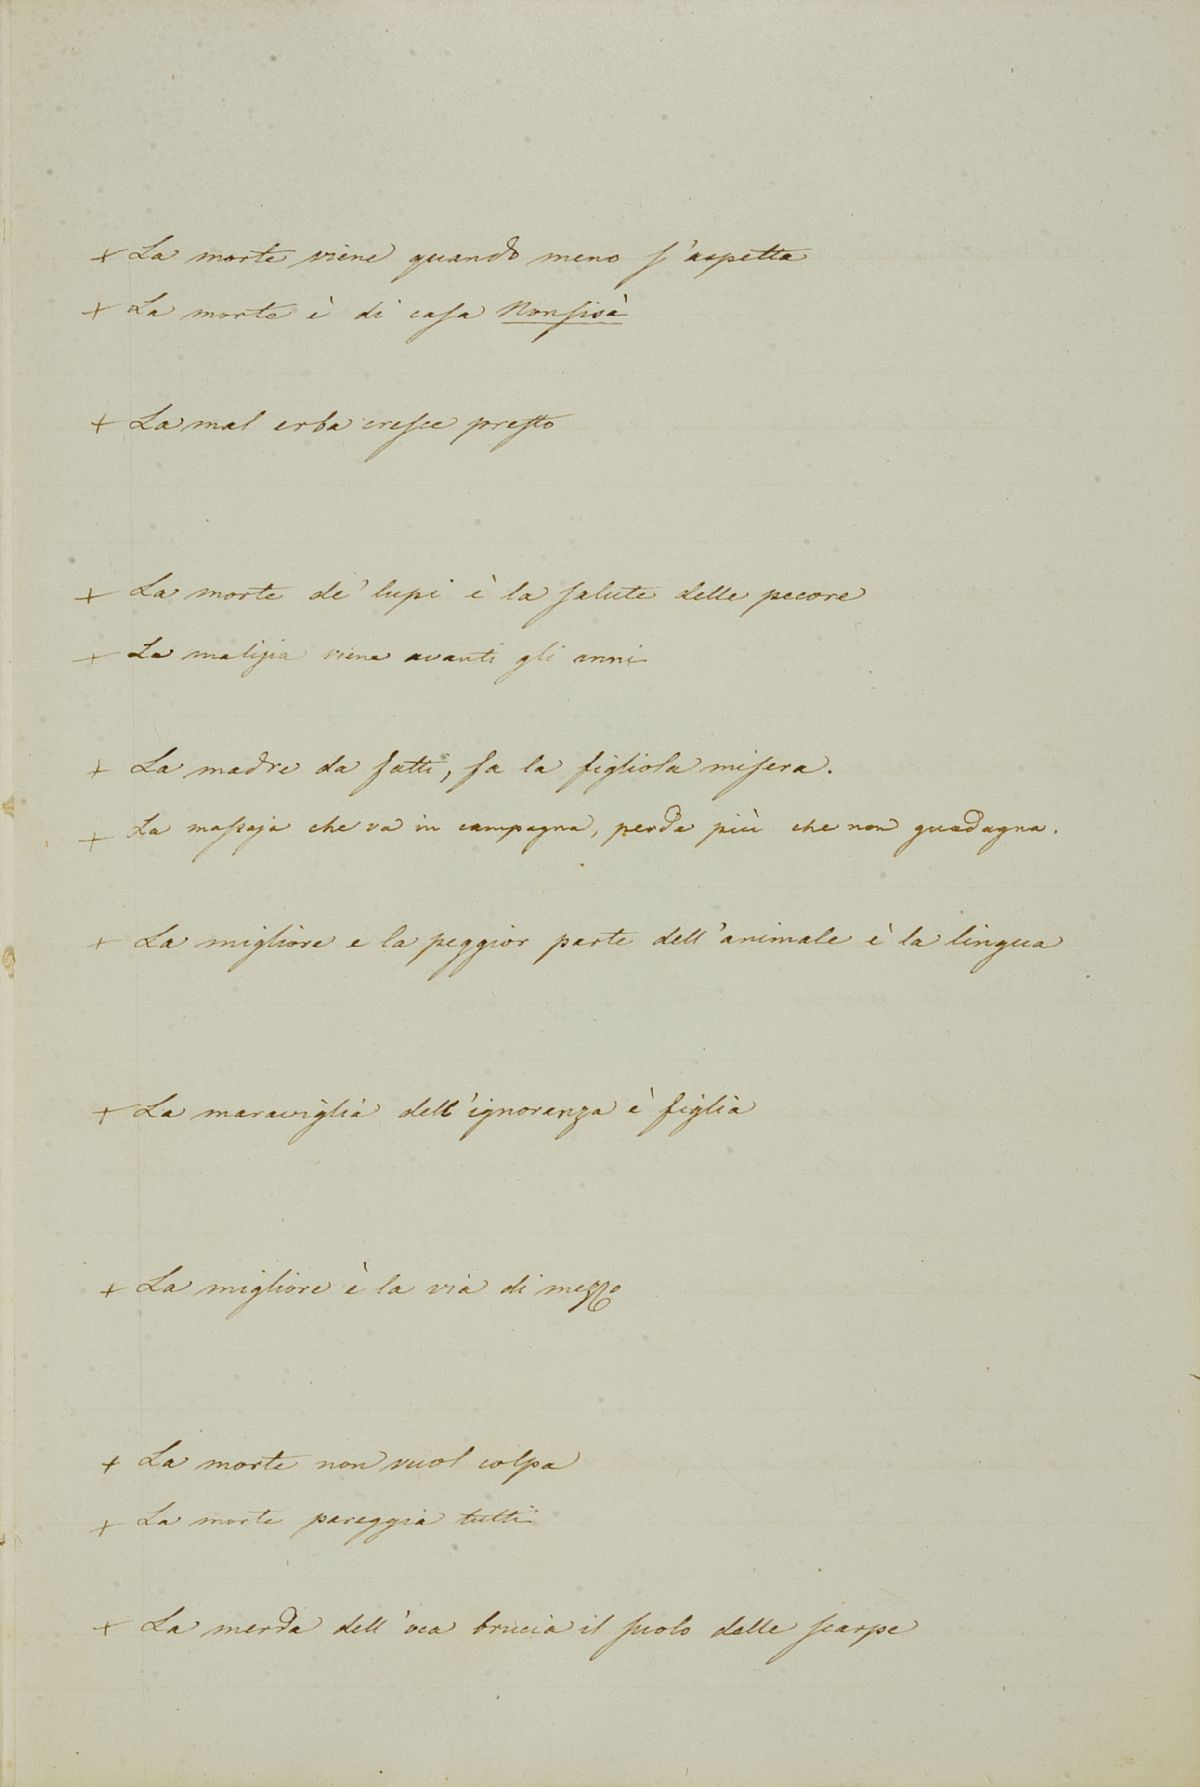 + La morte viene quando meno s'aspetta
+ La morte è di casa Nonsisà
+ La mal erba cresce presto
+ La morte de' lupi è la salute delle pecore
+ La malizia viene avanti gli anni
+ La madre da fatti, fa la figliola misera.
+ La massaja che va in campagna, perde più che non guadagna.
+ La migliore e la peggior parte dell'animale è la lingua
+ La maraviglia dell'ignoranza è figlia
+ La migliore è la via di mezzo
+ La morte non vuol colpa
+ La morte pareggia tutti
+ La merda dell'oca brucia il suolo delle scarpe